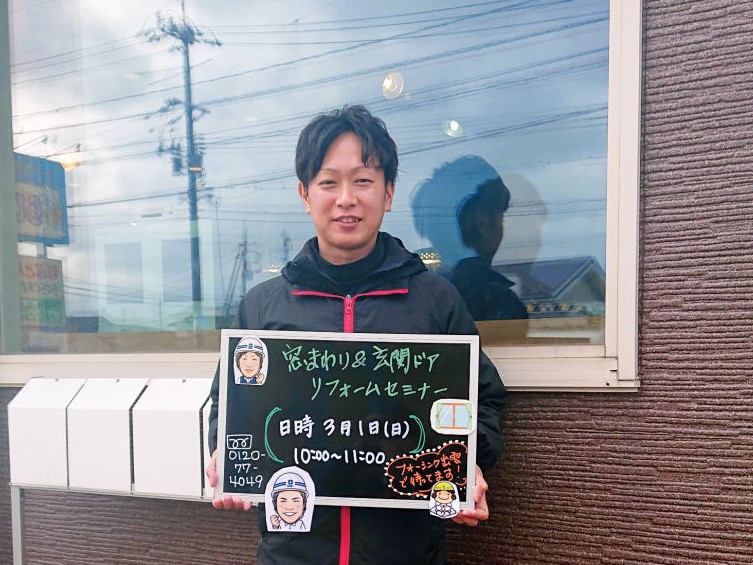 窓まわり&玄関ドア
リフォームセミナー
日時 3月1日(日)
10:00~11:00
0120-
77-
4049
フォーシンク出雲
で待ってます!